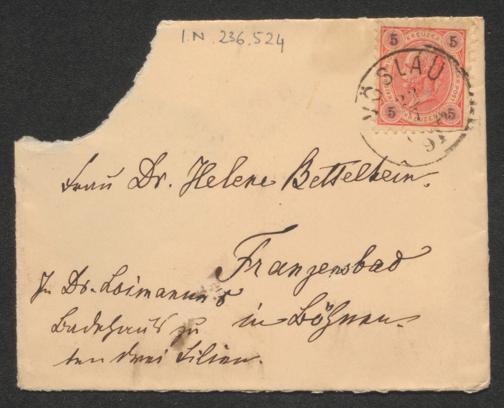 I.N. 236.524
5 KREUZER 5
VÖSLAU
5 5
Frau Dr. Helene Bettelheim.
Franzensbad
in Böhmen.
Dr. Loimann's
Badehaus zu
den drei Lilien.